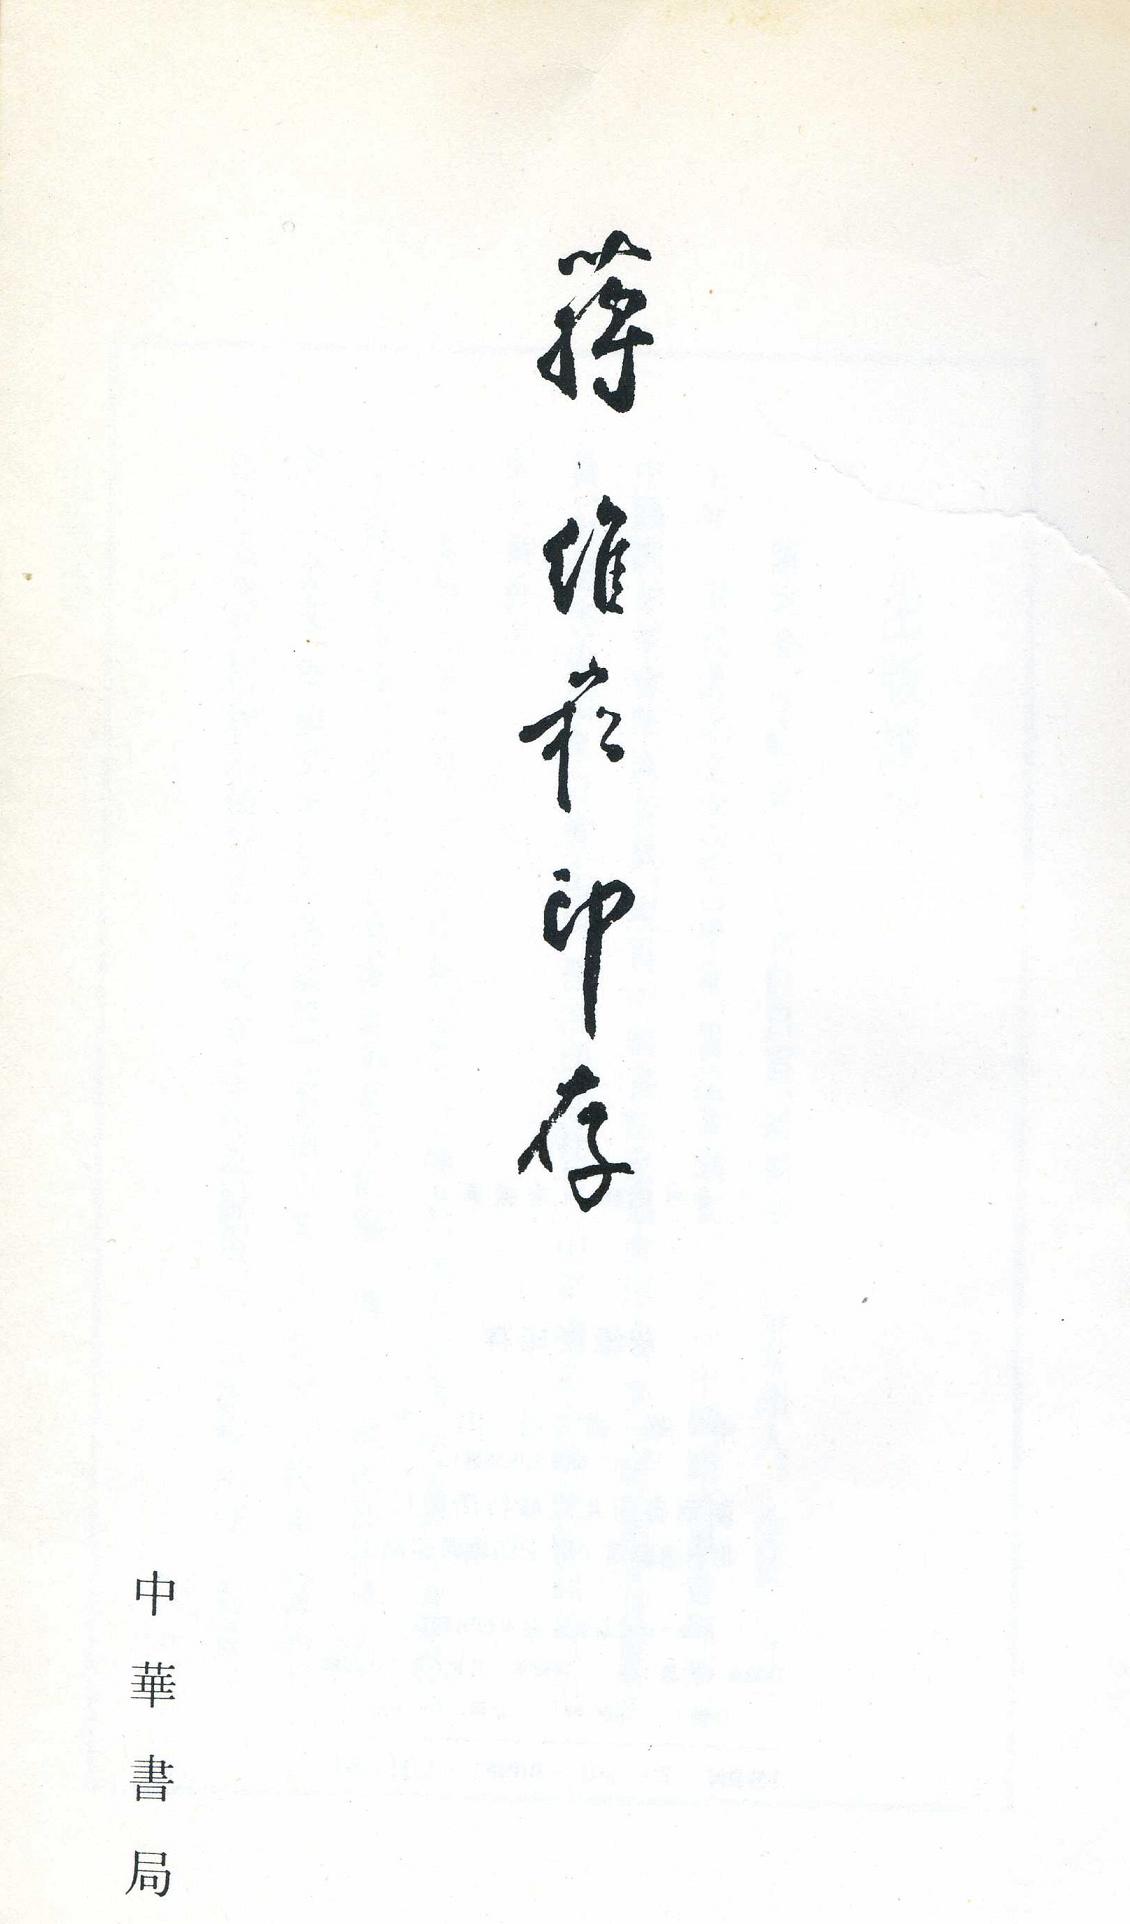 蔣維崧印存
中華書局